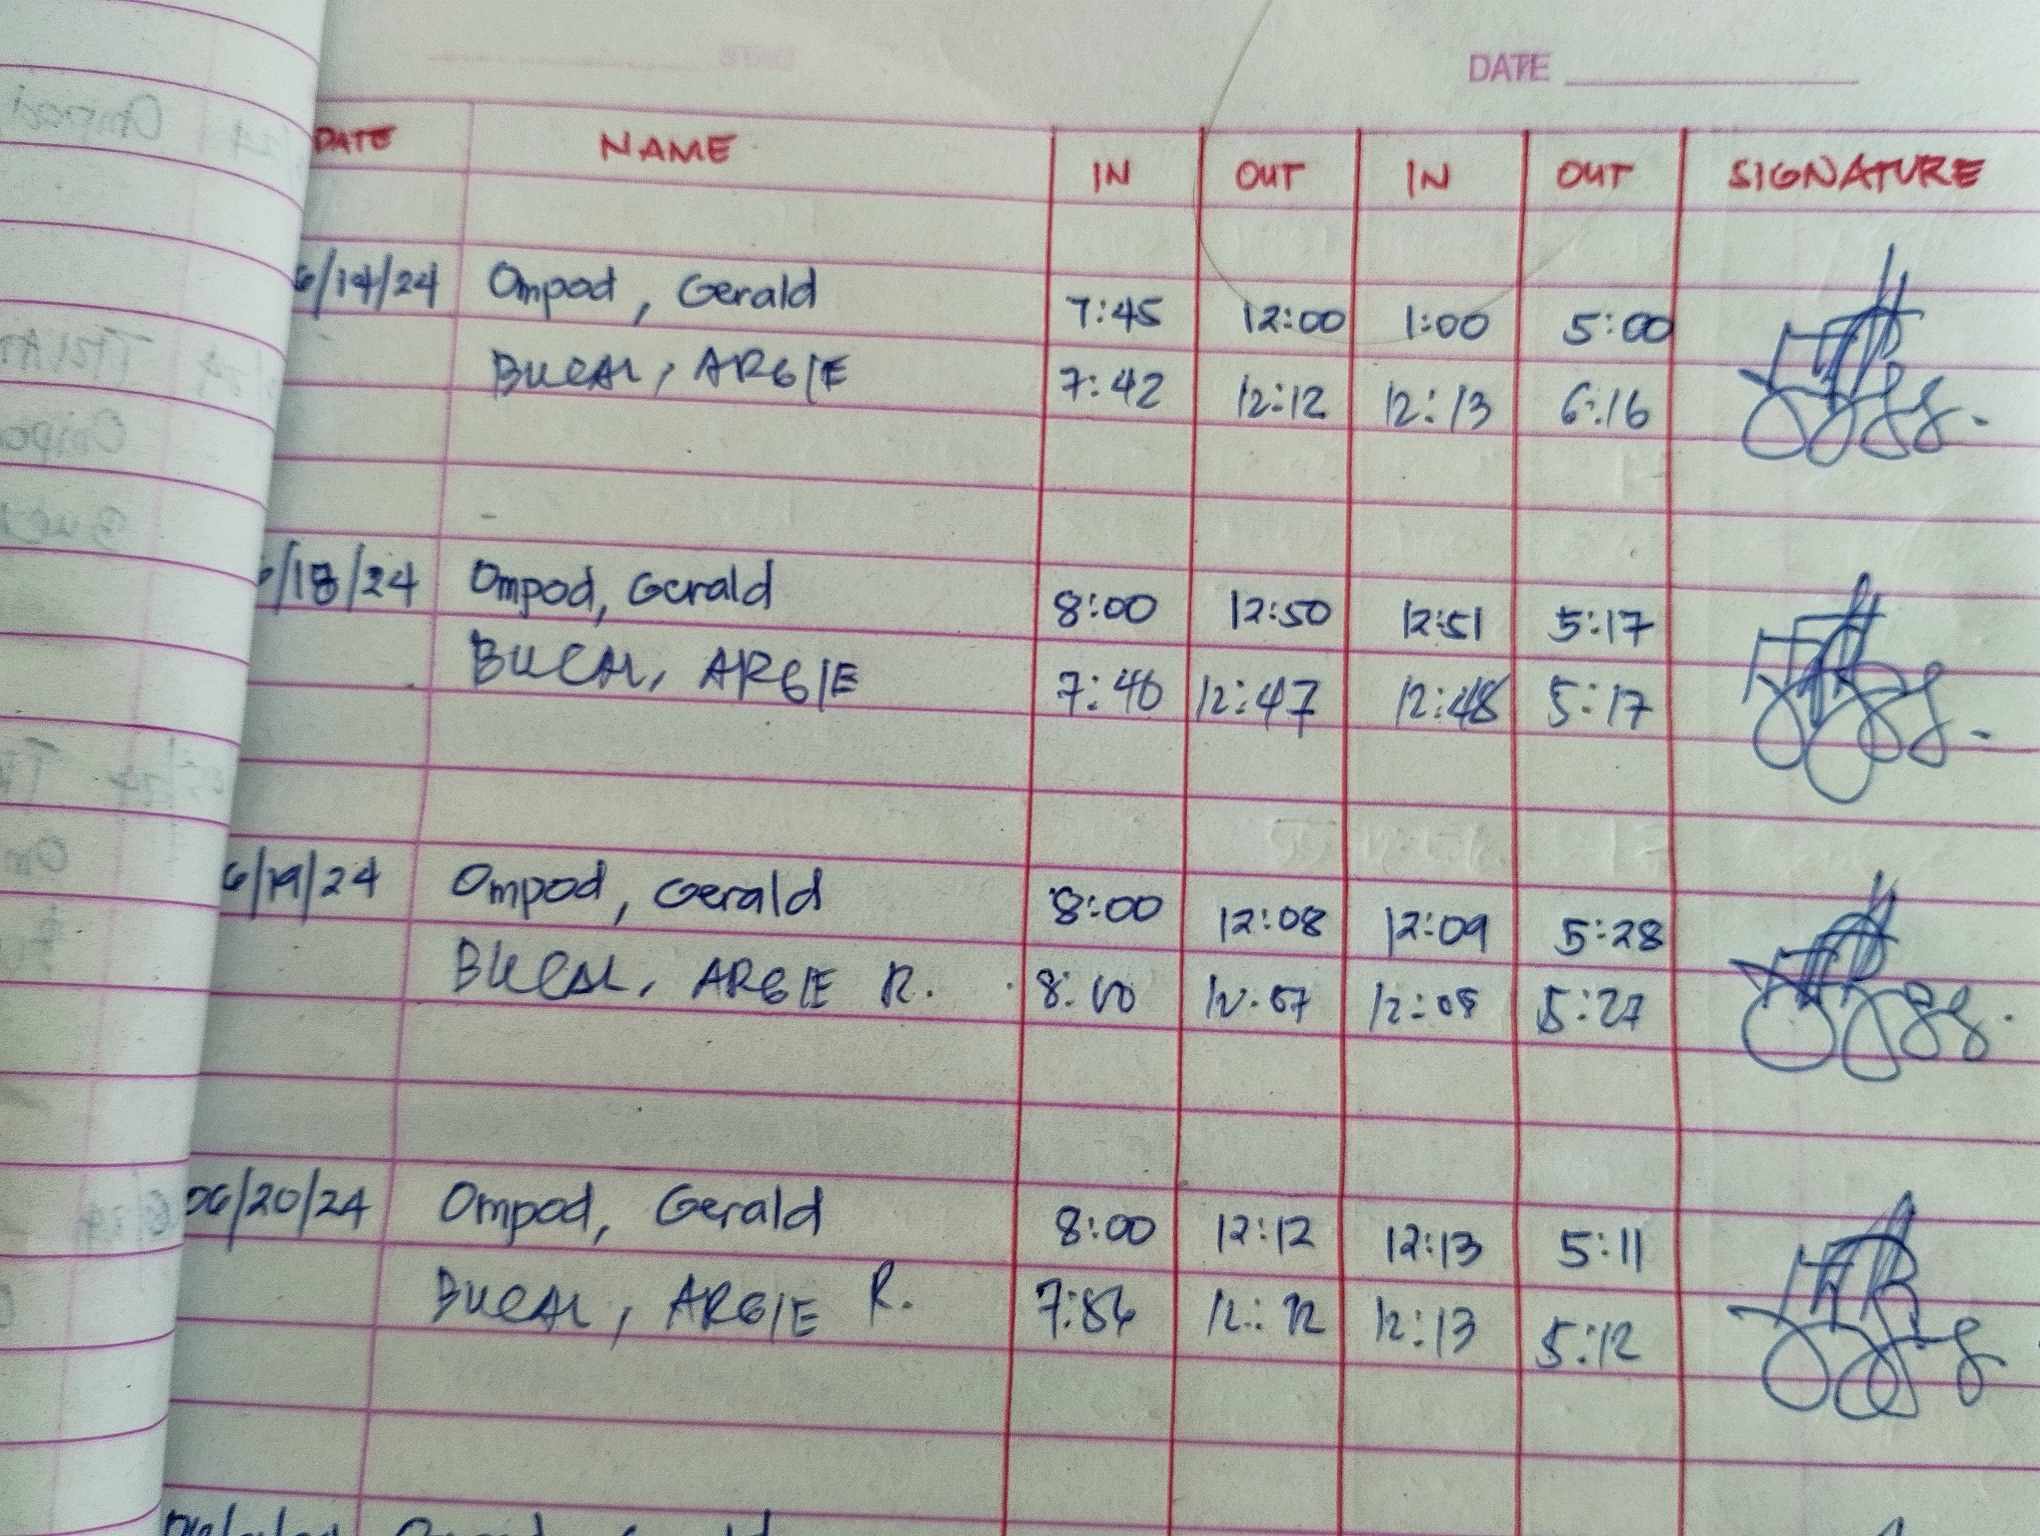 DATE
DATE NAME IN OUT IN OUT SIGNATURE
6/14/24 Ompod, Gerald 7:45 12:00 1:00 5:00
BUCAL, ARGIE 7:42 12:12 12:13 6:16
6/18/24 Ompod, Gerald 8:00 12:50 12:51 5:17
BUCAL, ARGIE 7:46 12:47 12:48 5:17
6/19/24 Ompod, Gerald 8:00 12:08 12:09 5:28
BUCAL, ARGIE R. 8:00 12:07 12:08 5:27
06/20/24 Ompod, Gerald 8:00 12:12 12:13 5:11
BUCAL, ARGIE R. 7:56 12:12 12:13 5:12